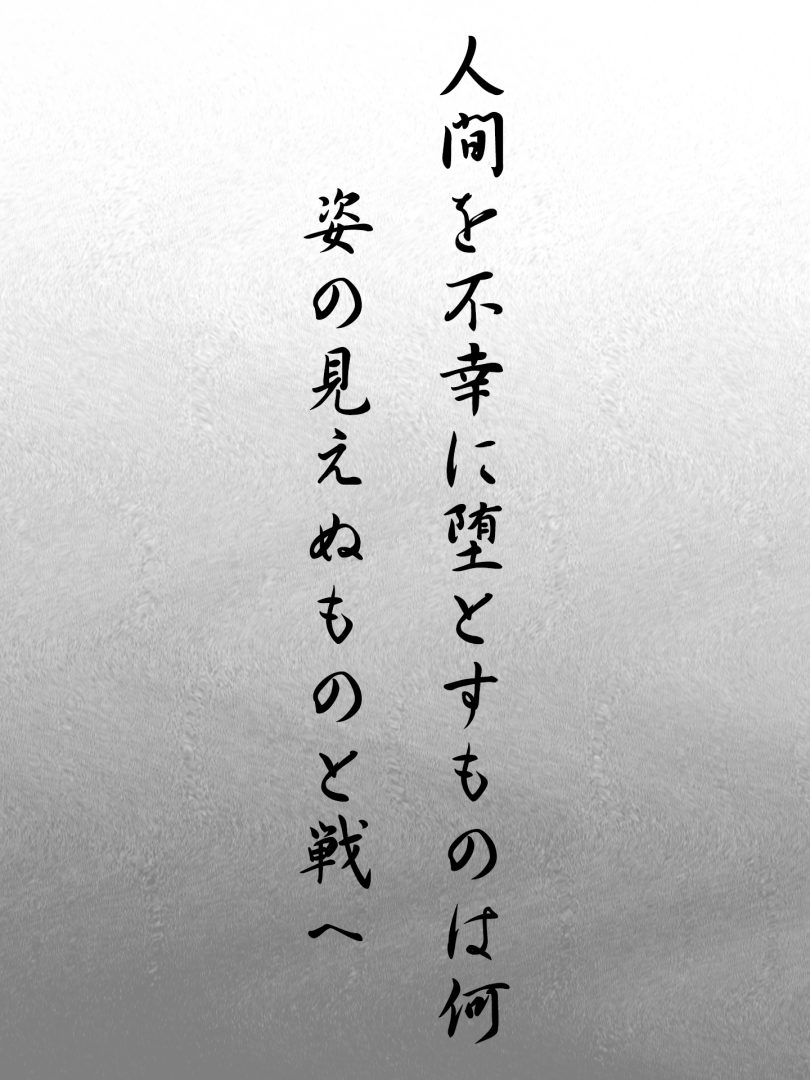 人間を不幸に堕とすものは何
姿の見えぬものと戦へ